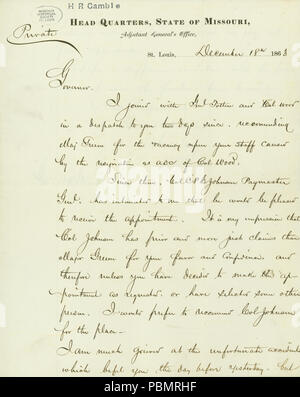 H R Gamble
Private
HEAD QUARTERS, STATE OF MISSOURI,
Adjutant General's Office,
St. Louis, December 18th 1863
Governor.
I joined with Genl Totten and Col Wood
in a dispatch to you two days since, recommending
Maj Green for the vacancy upon your staff caused
by the resignation as ADC of Col Wood.
Since then, Col Johnson Paymaster
Genl, has intimated to me that he would be pleased
to receive the appointment. It is my impression that
Col Johnson has prior and more just claims than
Major Green for your favor and confidence and
therefore unless you have decided to make the ap-
pointment as requested, or have selected some other
person, I would prefer to recommend Col Johnson
for the place—
I am much grieved at the unfortunate accident
which befel you the day before yesterday, but
alamy
PBMRHF